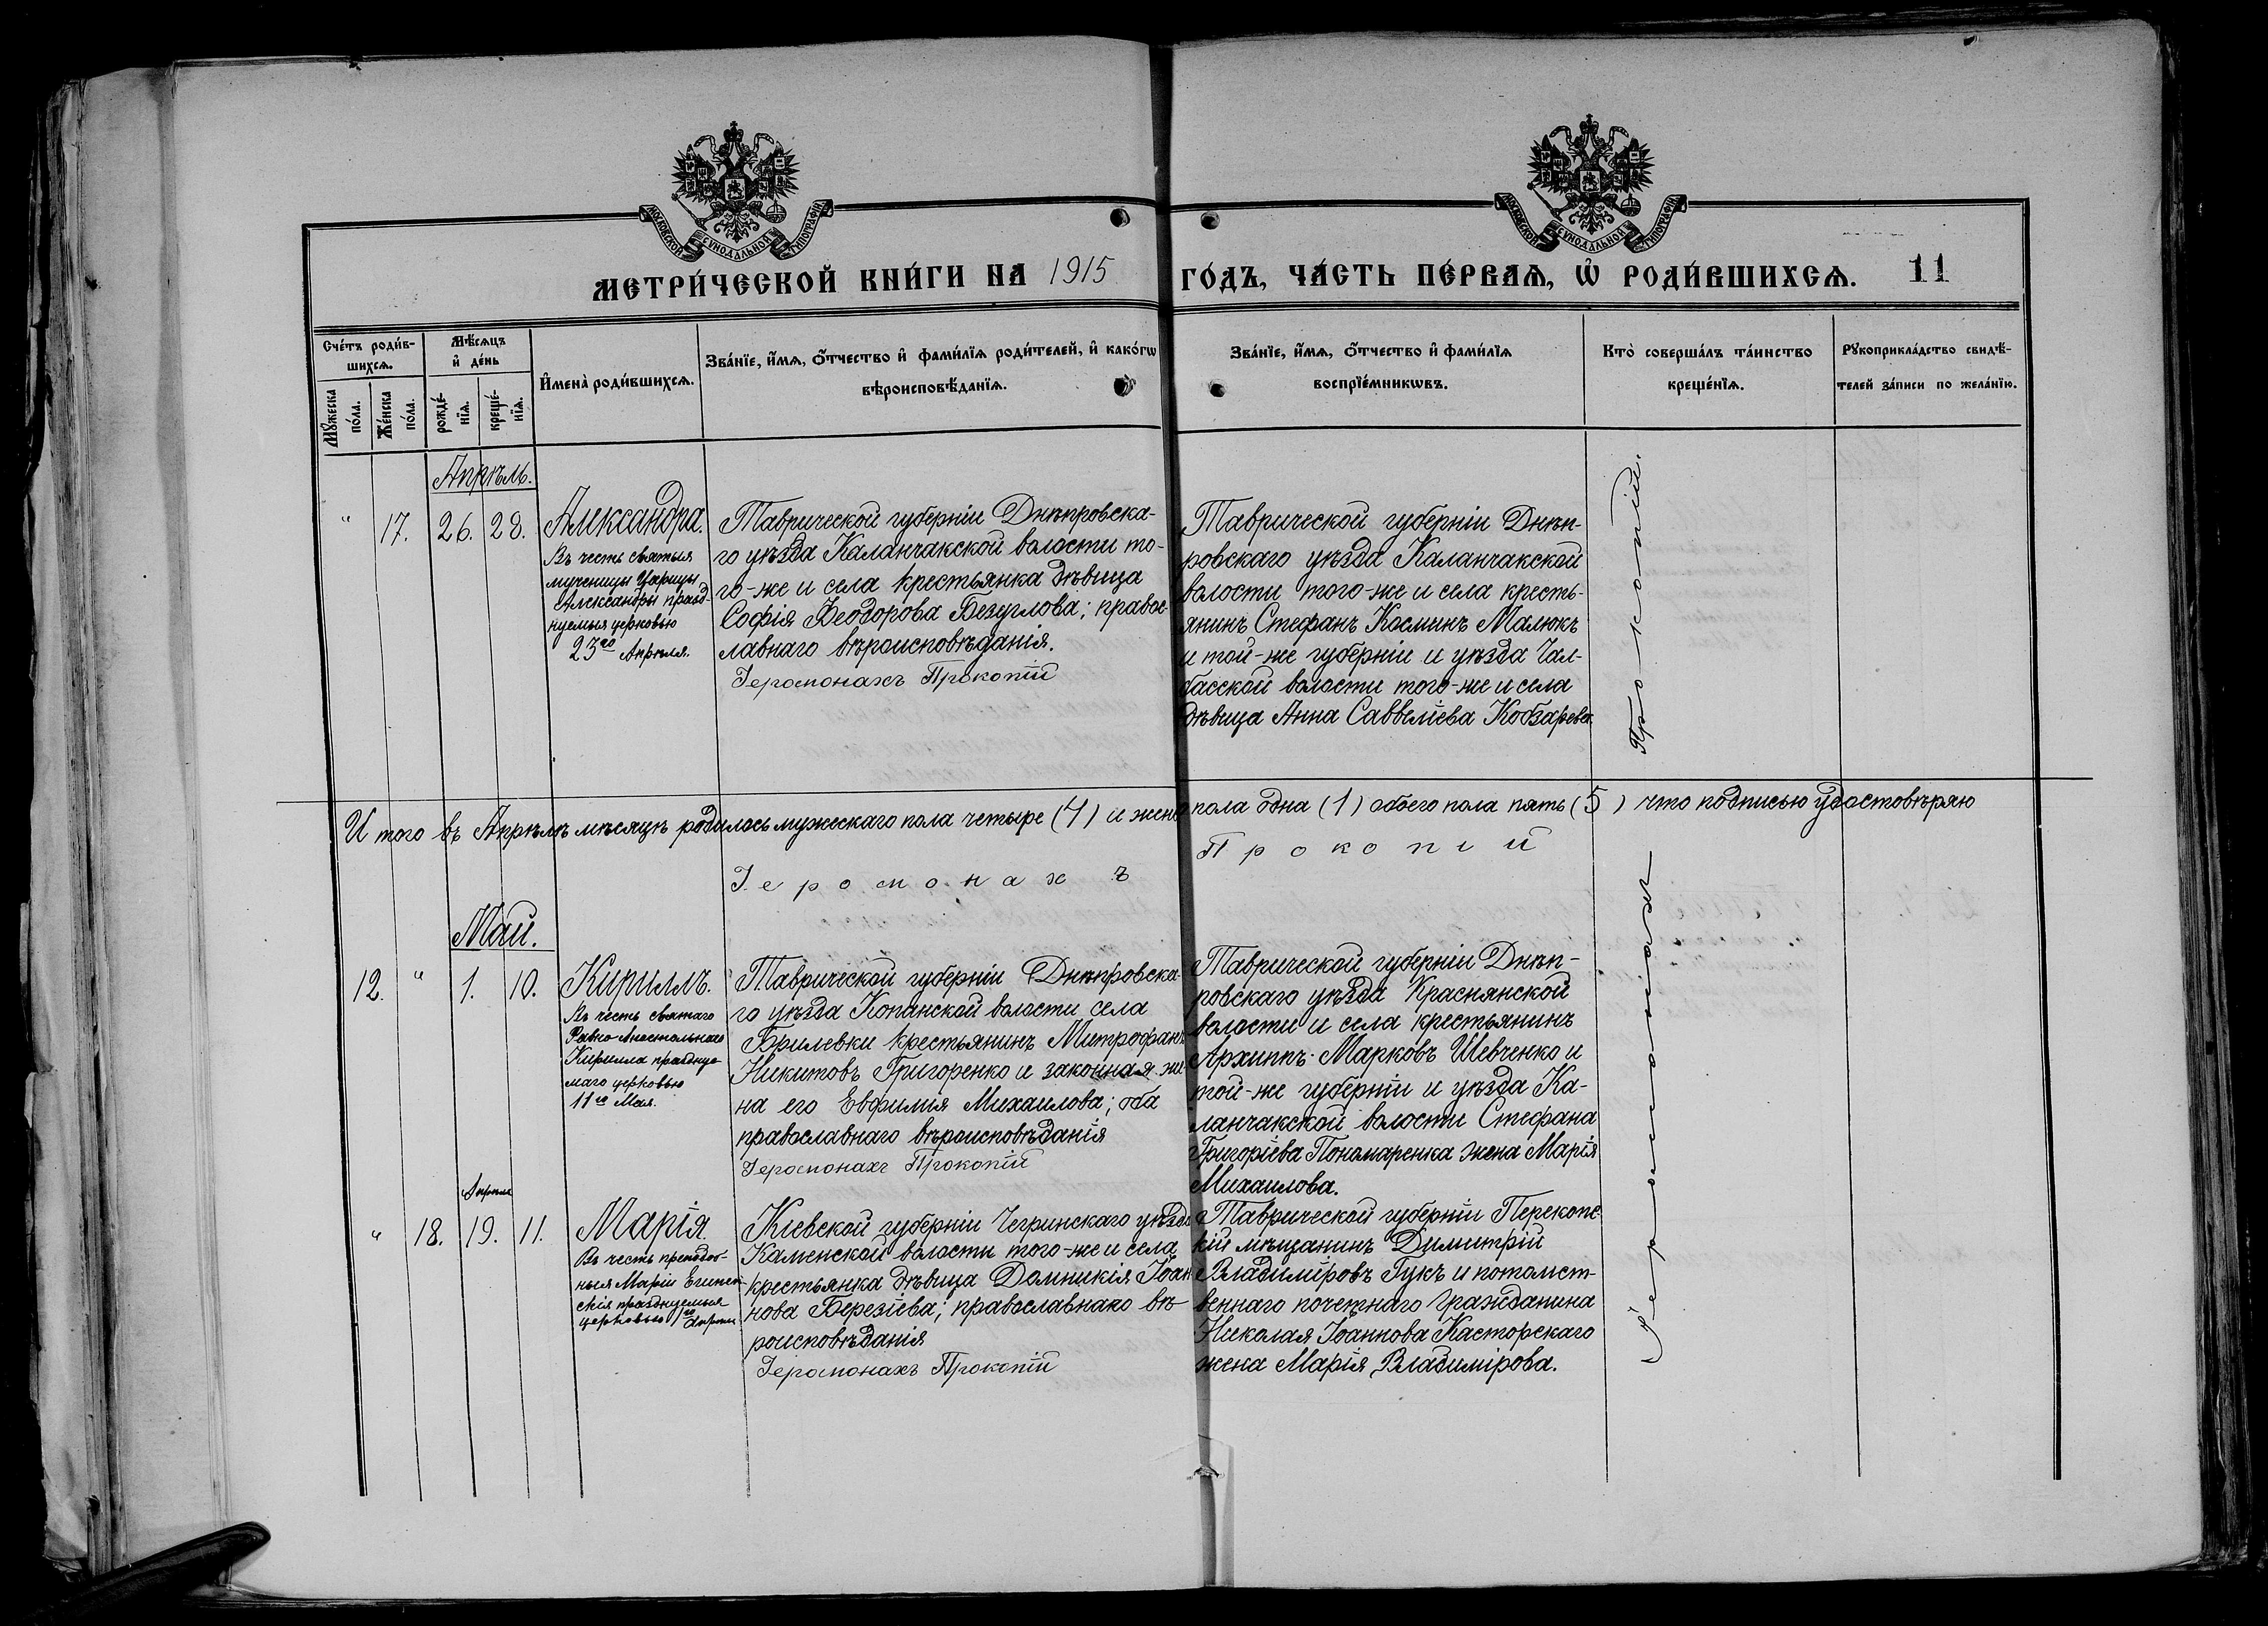 МОСКОВСКОЙ СУНОДАЛЬНОЙ ТИПОГРАФІИ
МОСКОВСКОЙ СУНОДАЛЬНОЙ ТИПОГРАФІИ
МЕТРИ́ЧЕСКОЙ КНИ́ГИ НА 1915 ГО́ДЪ, ЧА́СТЬ ПЕ́РВАѦ, Ѡ҆ РОДИ́ВШИХСѦ. 11
Сче́тъ роди́в-
шихсѧ.
Мꙋ́жеска
по́ла.
Же́нска
по́ла.
Мѣ́сѧцъ
и҆ де́нь
рожде́-
нїѧ.
креще́-
нїѧ.
И҆мена̀ роди́вшихсѧ.
Зва́нїе, и҆́мѧ, ѻ҆́тчество и҆ фами́лїѧ роди́телей, и҆ како́гѡ
вѣроисповѣ́данїѧ.
Зва́нїе, и҆́мѧ, ѻ҆́тчество и҆ фами́лїѧ
воспрїе́мникѡвъ.
Кто̀ соверша́лъ та́инство
креще́нїѧ.
Рꙋкоприкла́дство свидѣ́-
телей за́писи по жела́нїю.
Апрѣль.
" 17. 26. 28.
Александра.
Въ честь святыя
мученицы Царицы
Александры празд-
нуемыя церковью
23го Апрѣля.
Таврической губерніи Днѣпровска-
го уѣзда Каланчакской волости то-
го-же и села крестьянка дѣвица
Софія Ѳеодорова Безуглова; правос-
лавнаго вѣроисповѣданія.
Іеромонахъ Прокопій
Таврической губерніи Днѣп-
ровскаго уѣзда Каланчакской
волости того-же и села кресть-
янинъ Стефанъ Косминъ Малюкъ
и той-же губерніи и уѣзда Чал-
басской волости того-же и села
дѣвица Анна Саввеліева Кобзарева.
И того въ Апрѣлѣ мѣсяцѣ родилось мужескаго пола четыре (4) и жен. пола одна (1) обоего пола пять (5) что подписью удостовѣряю
Іеромонахъ Прокопій
Май.
12. " 1. 10.
Кириллъ.
Въ честь святаго
Равно-Апостольнаго
Кирилла празднуе-
маго церковью
11го Мая.
Таврической губерніи Днѣпровска-
го уѣзда Копанской волости села
Брилевки крестьянинъ Митрофанъ
Никитовъ Григоренко и законная же-
на его Евфимія Михаилова; оба
православнаго вѣроисповѣданія
Іеромонахъ Прокопій
Таврической губерніи Днѣп-
ровскаго уѣзда Краснянской
волости и села крестьянинъ
Архиппъ Марковъ Шевченко и
той-же губерніи и уѣзда Ка-
ланчакской волости Стефана
Григоріева Пономаренка жена Марія
Михаилова.
Апрѣля
" 18. 19. 11.
Марія.
Въ честь преподоб-
ныя Маріи Египет-
скія празднуемыя
церковью 1го Апрѣля
Кіевской губерніи Чегринскаго уѣзда
Каменской волости того-же и села
крестьянка дѣвица Домникія Іоан-
нова Березіева; православнаго вѣ-
роисповѣданія
Іеромонахъ Прокопій
Таврической губерніи Перекопс-
кій мѣщанинъ Димитрій
Владиміровъ Гукъ и потомст-
веннаго почетнаго гражданина
Николая Іоаннова Касторскаго
жена Марія Владимірова.
Іеромонахъ Прокопій.